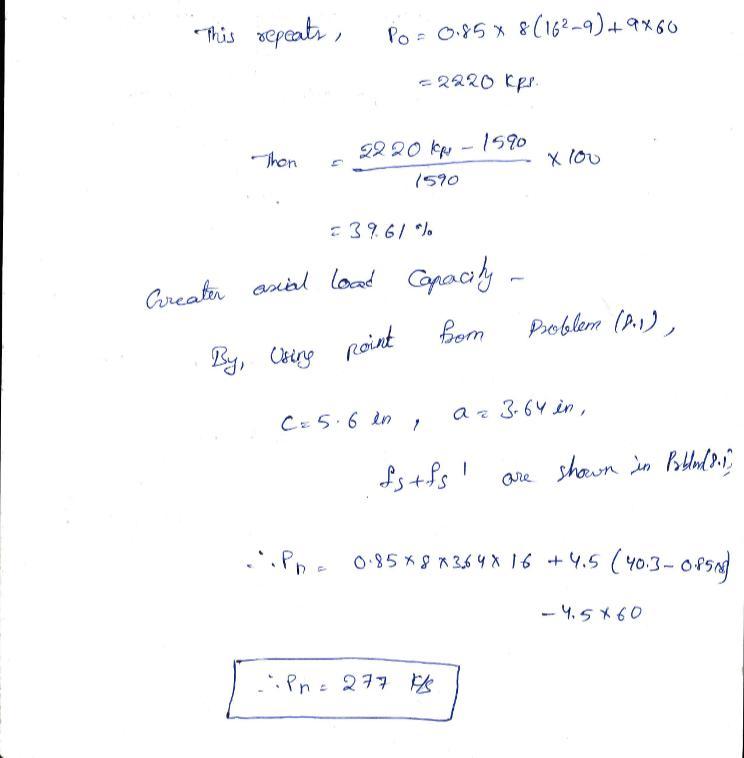 This repeats, Po = 0.85 x 8(16²-9)+9x60
= 2220 kps.
Then = 2220 kps - 1590 / 1590 x 100
= 39.61 %
Greater axial load Capacity -
By, Using point from Problem (8.1),
C = 5.6 in , a = 3.64 in,
fs + fs' are shown in (8.1)
∴ Pn = 0.85 x 8 x 3.64 x 16 + 4.5 (40.3 - 0.85x8)
- 4.5 x 60
∴ Pn = 277 k/s